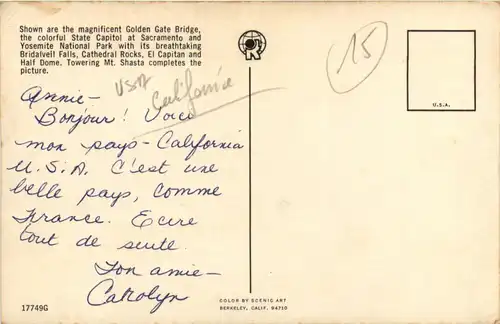 Shown are the magnificent Golden Gate Bridge,
the colorful State Capitol at Sacramento and
Yosemite National Park with its breathtaking
Bridalveil Falls, Cathedral Rocks, El Capitan and
Half Dome. Towering Mt. Shasta completes the
picture.
USA
California
15
U.S.A.
Annie-
Bonjour! Voici
mon pays - California
U.S.A. C'est une
belle pays, comme
France. Ecire
tout de seute.
Ton amie-
Carolyn
17749G
COLOR BY SCENIC ART
BERKELEY, CALIF. 94710